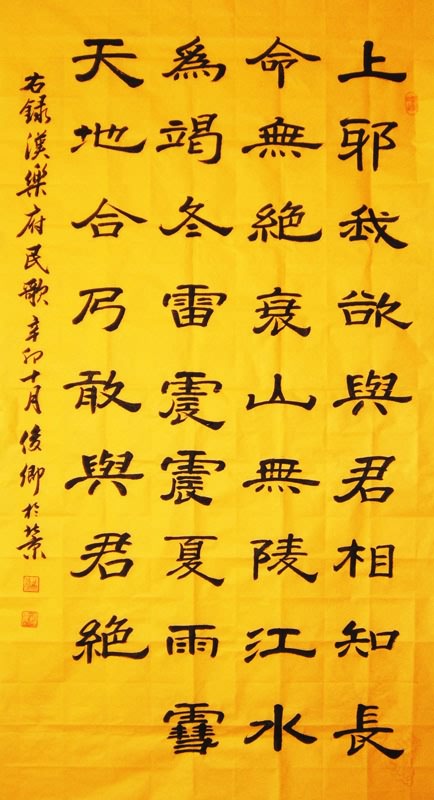 上邪我欲與君相知長
命無絶衰山無陵江水
為竭冬雷震震夏雨雪
天地合乃敢與君絶
右録漢樂府民歌辛卯十月俊卿於